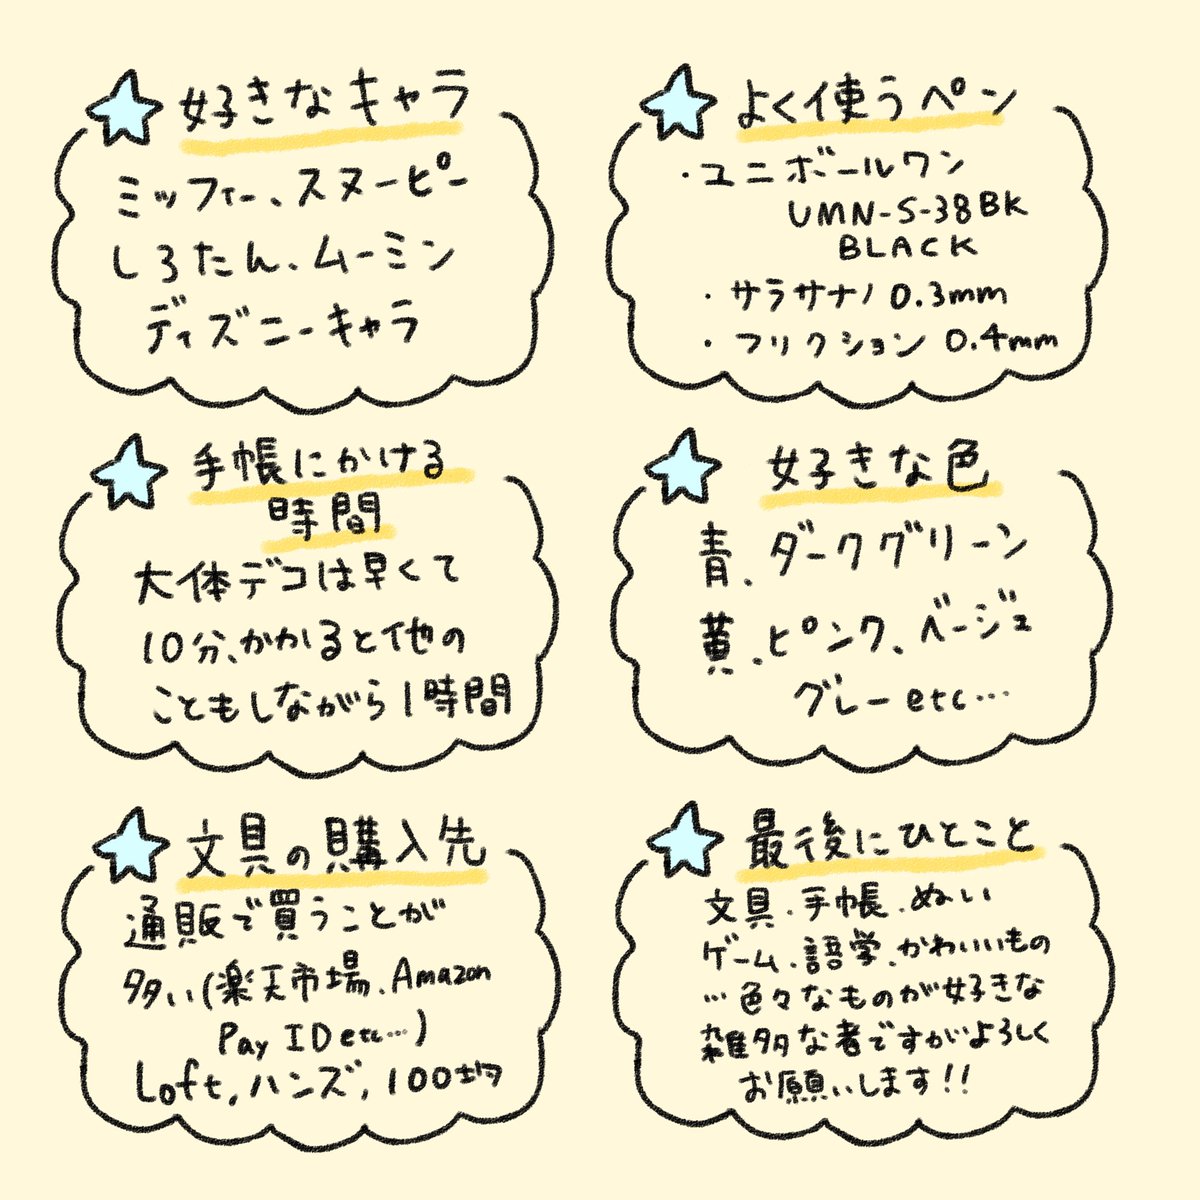 好きなキャラ
ミッフィー、スヌーピー
しろたん、ムーミン
ディズニーキャラ
よく使うペン
・ユニボールワン
UMN-S-38BK
BLACK
・サラサナノ 0.3mm
・フリクション 0.4mm
手帳にかける
時間
大体デコは早くて
10分、かかると他の
こともしながら1時間
好きな色
青、ダークグリーン
黄、ピンク、ベージュ
グレーetc…
文具の購入先
通販で買うことが
多い(楽天市場、Amazon
Pay ID etc…)
Loft, ハンズ, 100均
最後にひとこと
文具、手帳、ぬい
ゲーム、語学、かわいいもの
…色々なものが好きな
雑多な者ですがよろしく
お願いします!!